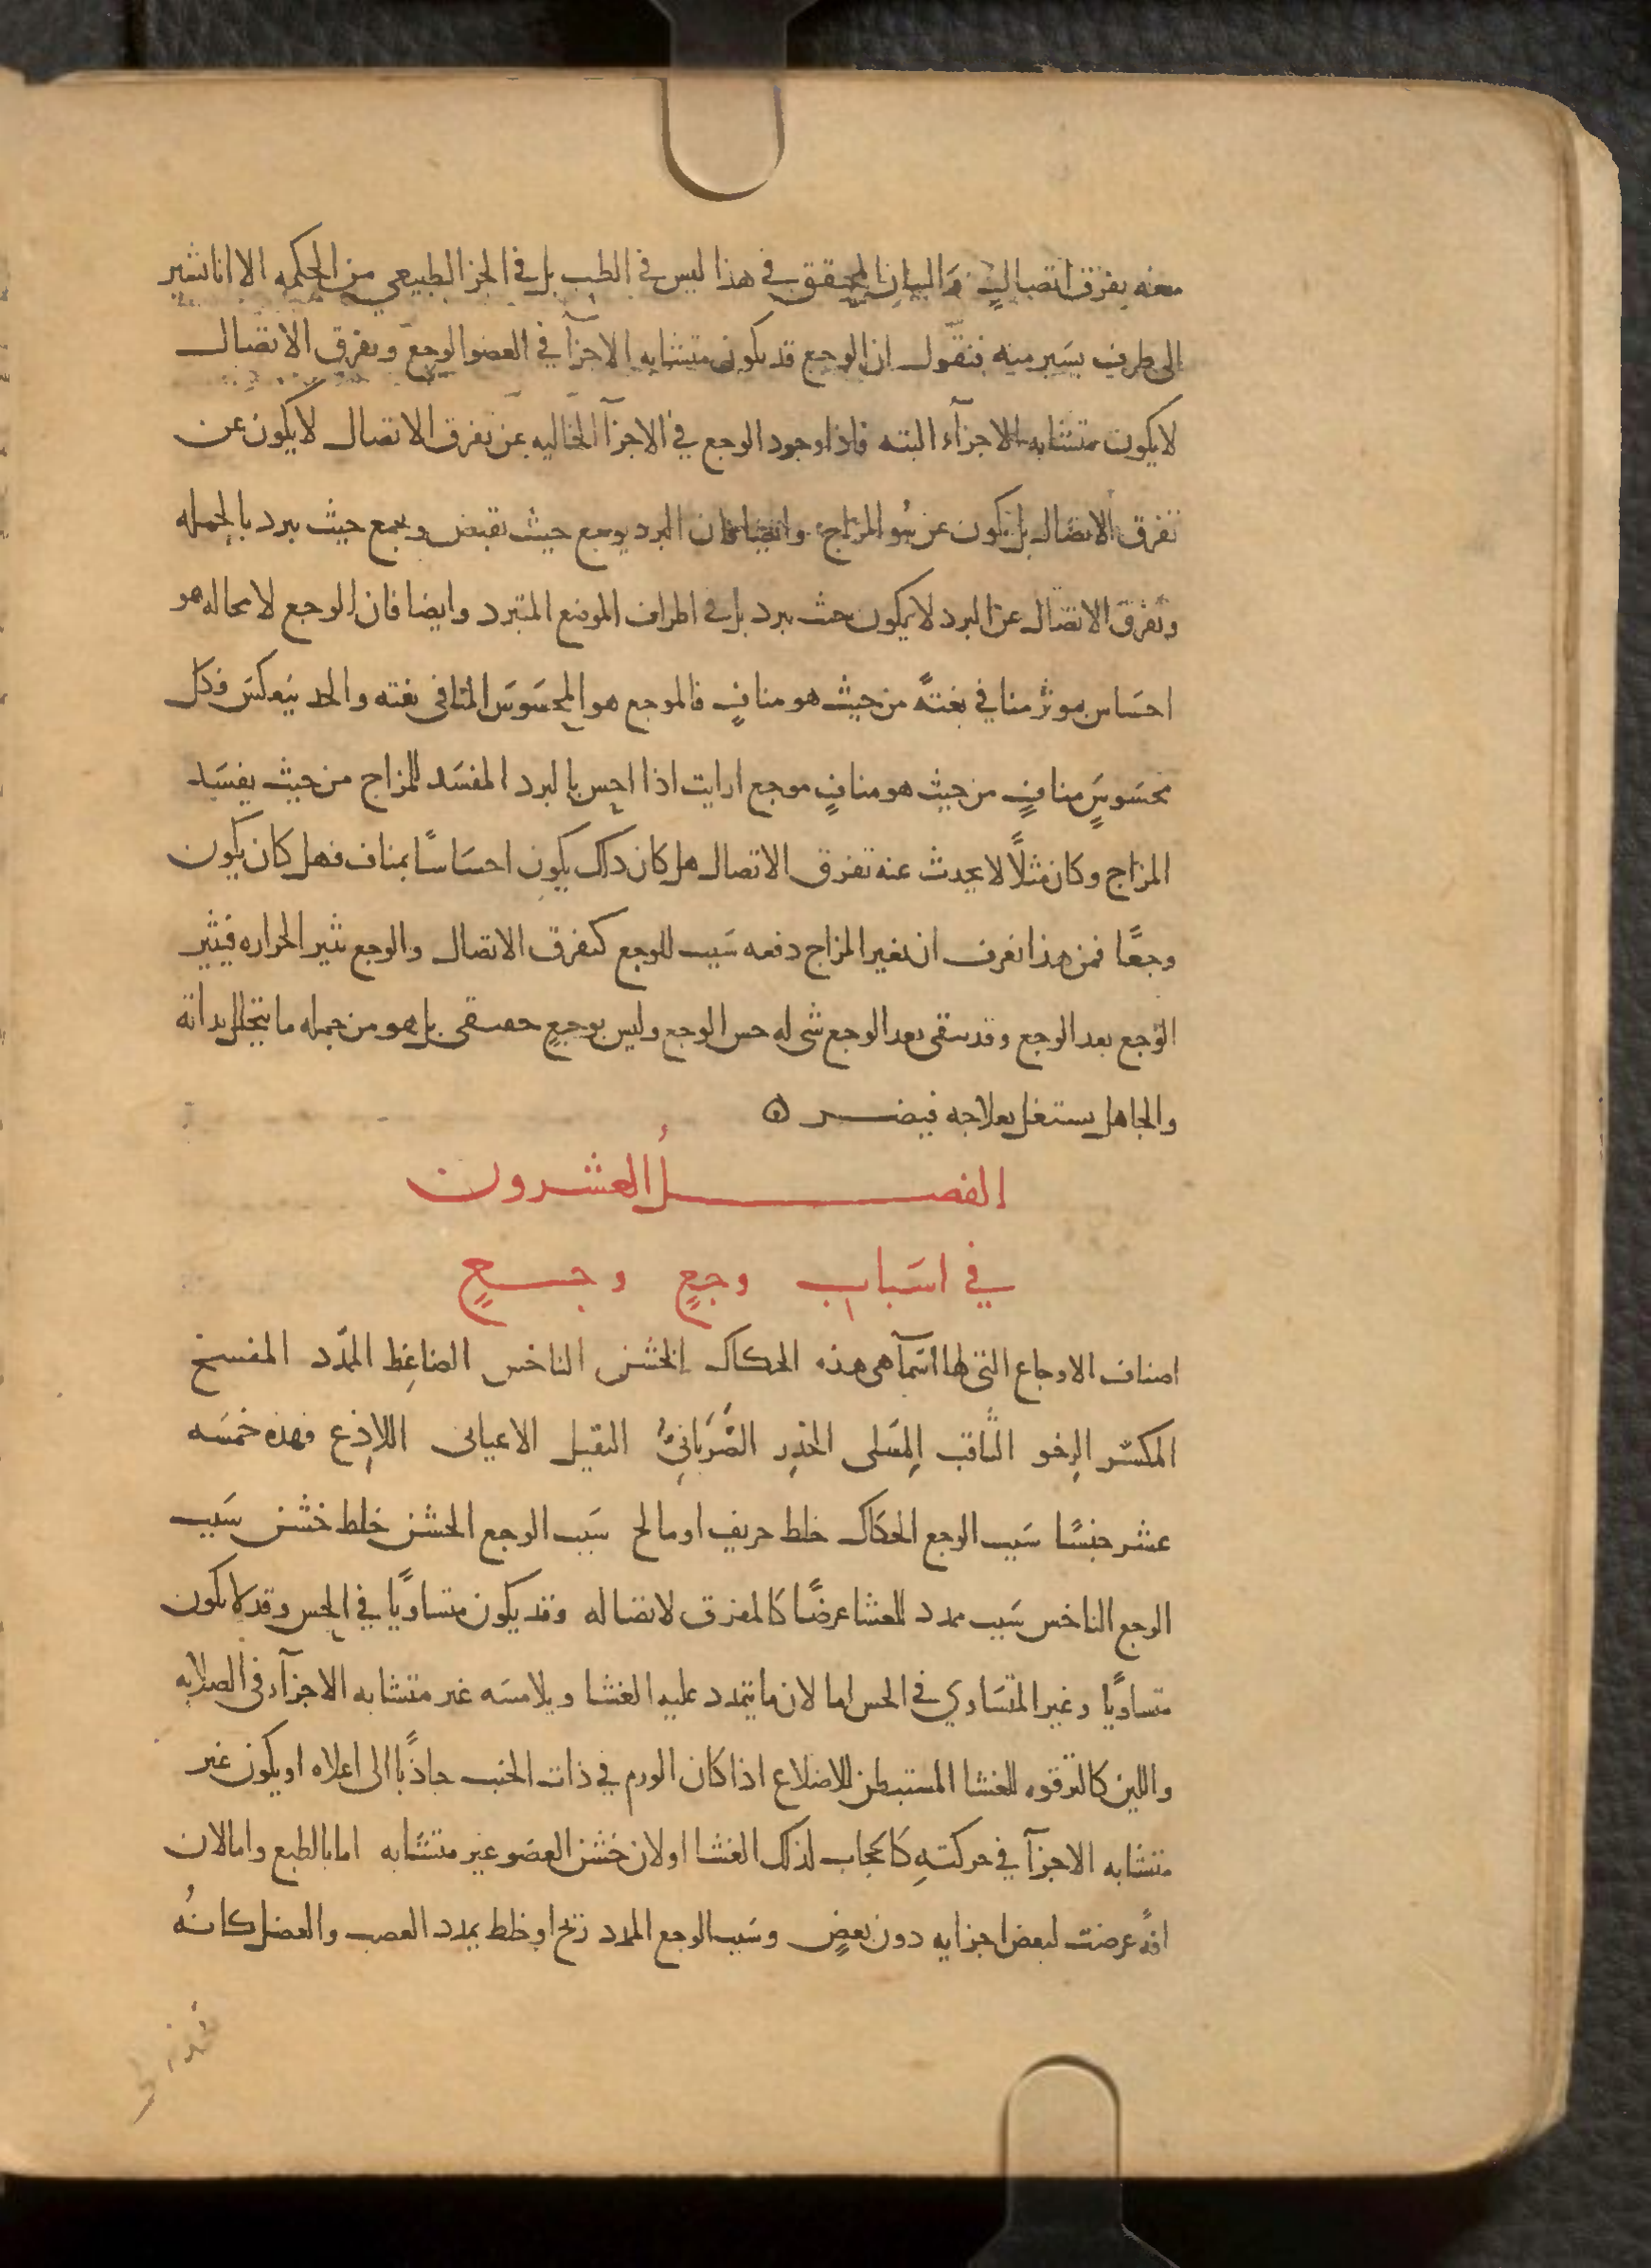 معه يفرق اتصالي والبيان المحقق في هذا ليس في الطب بل في الجز الطبيعي من الحكمه الا انا نشير
الى طرف يسير منه فنقول ان الوجع قد يكون متشابه الاجزآ في العضو الوجع وتفرق الاتصال
لا يكون متشابه الاجزآء البته فاذا وجود الوجع في الاجزآ الخاليه عن تفرق الاتصال لا يكون عن
تفرق الاتصال بل يكون عن سُو المزاج وايضا فان البرد يوجع حيث يقبض ويجمع حيث يبرد بالجمله
وتفرق الاتصال عن البرد لا يكون حيث يبرد بل في اطراف الموضع المتبرد وايضا فان الوجع لا محاله هو
احساس بموثر منافي بغتةً من حيث هو منافٍ فالموجع هو المحسوس المنافى بغته والحد ينعكس فكل
محسوسٍ منافٍ من حيث هو منافٍ موجع ارايت اذا احس بالبرد المفسد للمزاج من حيث يفسد
المزاج وكان مثلاً لا يحدث عنه تفرق الاتصال هل كان ذلك يكون احساسًا بمناف فهل كان يكون
وجعًا فمن هذا نعرف ان تغير المزاج دفعه سبب للوجع كتفرق الاتصال والوجع يثير الحراره فيثير
الوجع بعد الوجع وقد يبقى بعد الوجع شى له حس الوجع وليس بوجعٍ حقيقى بل هو من جمله ما يتحلل بذاته
والجاهل يستغل بعلاجه فيضر ه
الفصلُ العشرون
في اسباب وجعٍ وجعٍ
اصناف الاوجاع التى لها اسمآ هى هذه الحكاك الخشن الناخس الضاغِط الممدّد المفسخ
المكسّر الرِخو الثَّاقب المِسَلى الخذِر الضَّرَبَانِىُّ الثقيل الاعيائى اللاذِع فهذه خمسه
عشر جنسًا سبب الوجع الحكاك خلط حريف او مالح سبب الوجع الخشن خلط خشن سبب
الوجع الناخس سبب ممدد للغشا عرضًا كالمفرق لاتصاله وقد يكون متساويًا في الحس وقد لا يكون
متساويًا وغير المتساوي في الحس اما لان ما يتمدد عليه الغشا ويلامسه غير متشابه الاجزآء فى الصلابه
واللين كالترقوه للغشا المستبطن للاضلاع اذا كان الورم في ذات الجنب جاذبًا الى اعلاه او يكون غير
متشابه الاجزآ في حركتهِ كالحجاب لذلك الغشا او لان حسّ العضو غير متشابه اما بالطبع واما لان
افهً عرضت لبعض اجزايه دون بعضٍ وسبب الوجع الممدد ريح او خلط يمدد العصب والعضل كانهُ